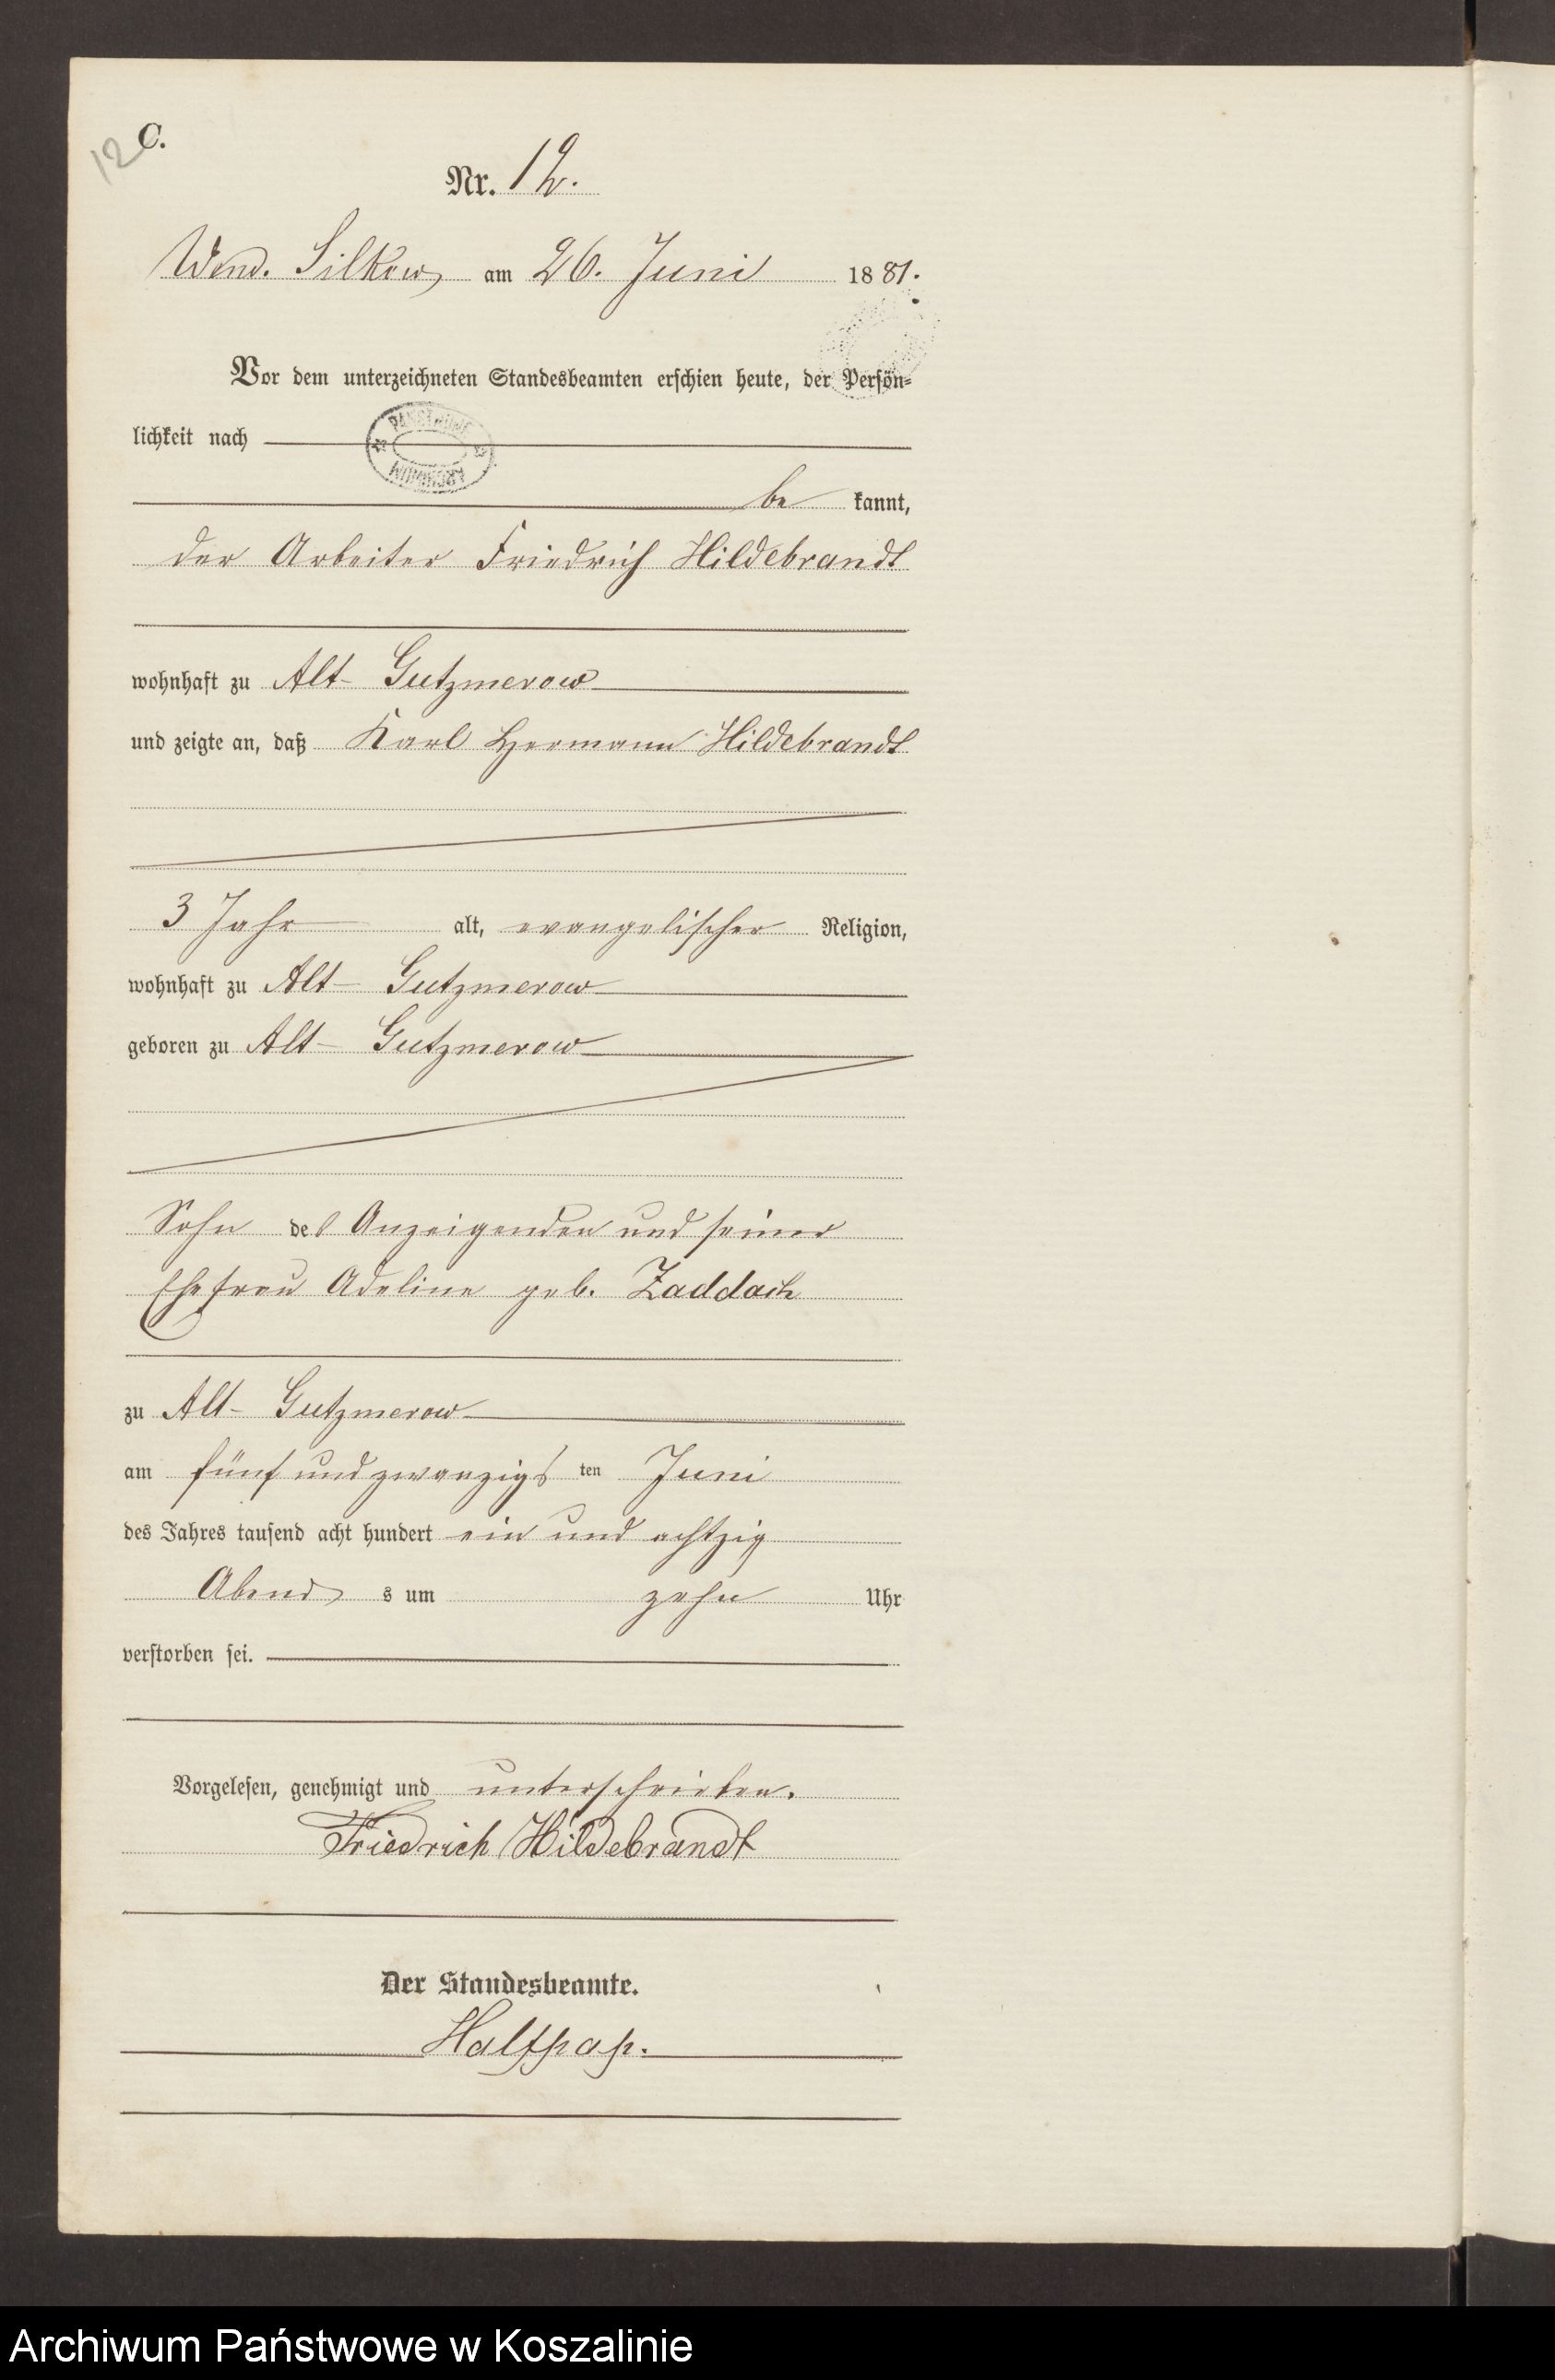 C.
12
Nr. 12.
Wend. Silkow am 26. Juni 1881.
Vor dem unterzeichneten Standesbeamten erschien heute, der Persön-
lichkeit nach
be kannt,
der Arbeiter Friedrich Hildebrandt
wohnhaft zu Alt- Gutzmerow
und zeigte an, daß Karl Hermann Hildebrandt
3 Jahr alt, evangelischer Religion,
wohnhaft zu Alt- Gutzmerow
geboren zu Alt- Gutzmerow
Sohn des Anzeigenden und seiner
Ehefrau Adeline geb. Zaddach
zu Alt- Gutzmerow
am fünf und zwanzigs ten Juni
des Jahres tausend acht hundert ein und achtzig
Abend s um zehn Uhr
verstorben sei.
Vorgelesen, genehmigt und unterschrieben.
Friedrich Hildebrandt
Der Standesbeamte.
Halfpap.
Archiwum Państwowe w Koszalinie